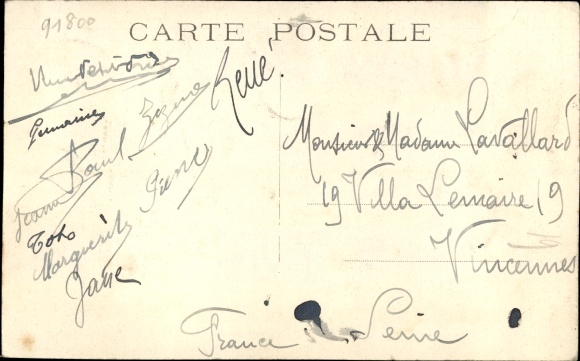 91800
CARTE POSTALE
René
Germaine
Paul
Jeanne
Pierre
Toto
Marguerite
Jane
Monsieur & Madame Lavallard
19 Villa Lemaire 19
Vincennes
France Seine